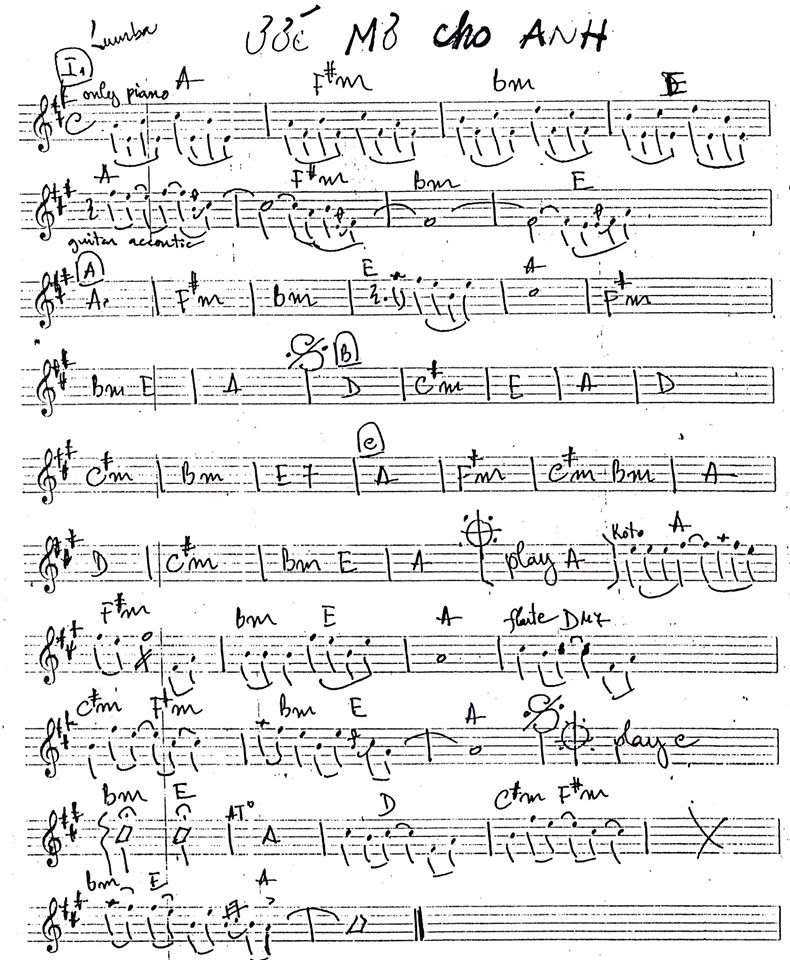 Rumba ƯỚC MƠ cho ANH
I1
only piano A F#m Bm E
C
A F#m Bm E
guitar accoustic
A E A
A F#m Bm F#m
B
Bm E A D C#m E A D
C
C#m Bm E7 A F#m C#m Bm A
D C#m Bm E A play A Koto A
F#m Bm E A flute DM7
C#m F#m Bm E A play C
Bm E AT° A D C#m F#m
Bm E A